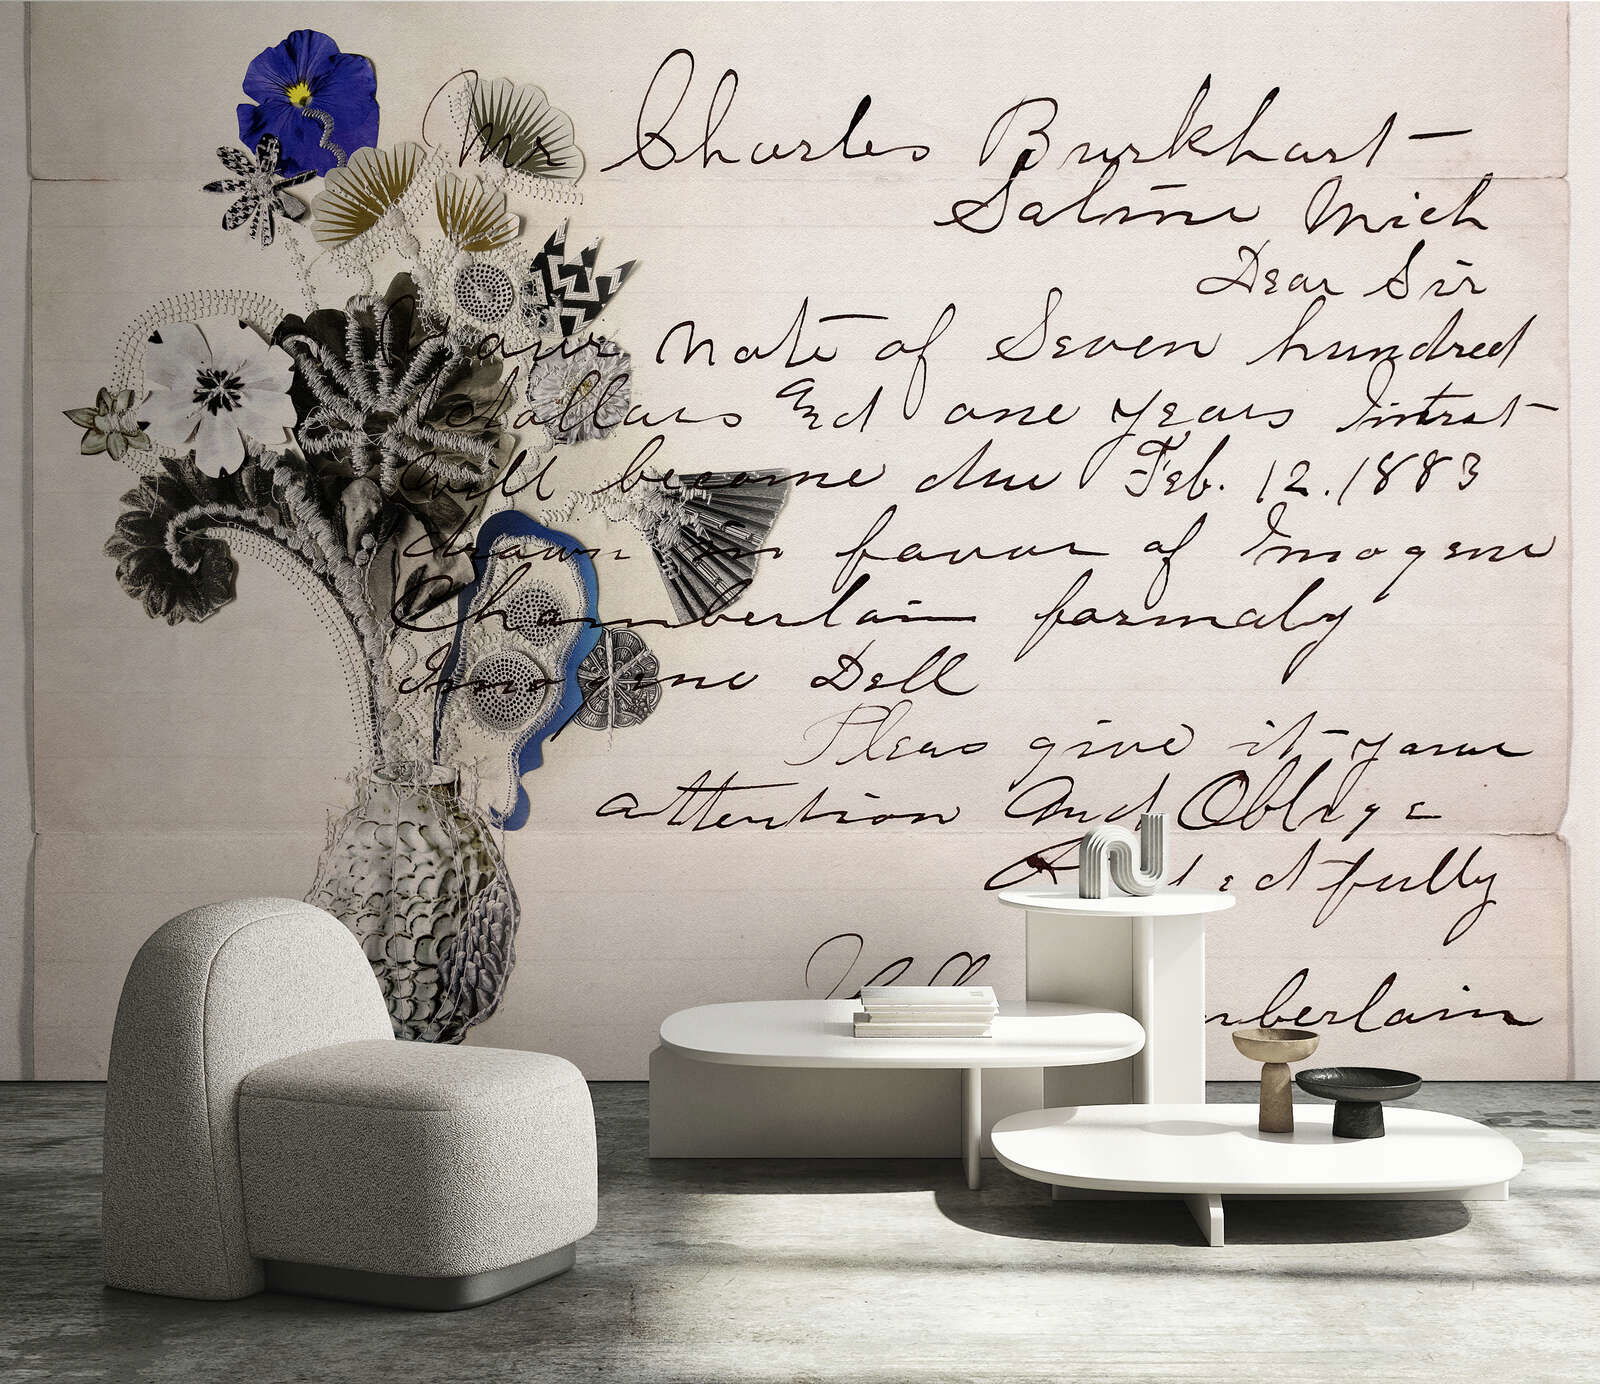 Mr Charles Burkhart
Saline Mich
Dear Sir
Your Note of Seven hundred
dollars and one years Intrest
will become due Feb. 12. 1883
drawn in favour of Imogene
Chamberlain formaly
Imogene Dell
Pleas give it your
attention And Oblige
fully
mberlain